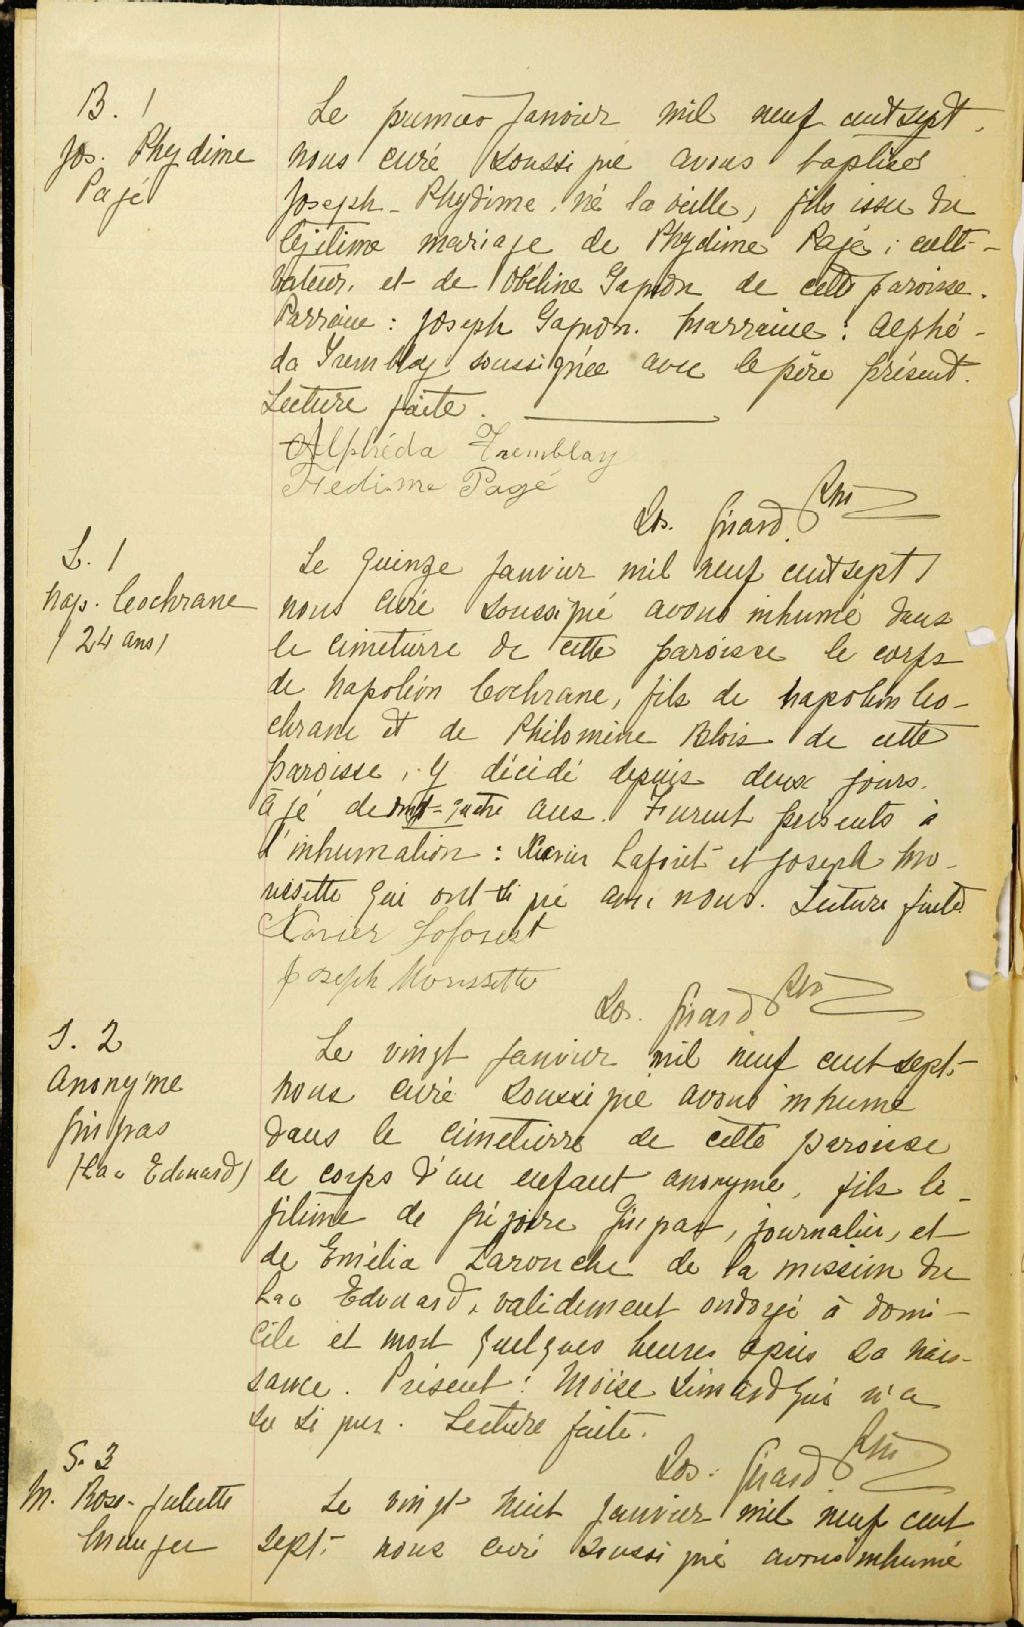 B. 1
Jos. Phydime
Pajé
Le premier Janvier mil neuf cent sept,
nous curé soussigné avons baptisé
Joseph-Phydime, né la veille, fils issu du
légitime mariage de Phydime Pajé, culti-
vateur, et de Obéline Gagnon de cette paroisse.
Parrain : Joseph Gagnon. Marraine : Alphé-
da Tremblay soussignée avec le père présent.
Lecture faite.
Alphéda Tremblay
Fedime Pagé
Ls. Girard, Ptre
S. 1
Nap. Cochrane
/ 24 ans /
Le quinze janvier mil neuf cent sept,
nous curé soussigné avons inhumé dans
le cimetière de cette paroisse le corps
de Napoléon Cochrane, fils de Napoléon Co-
chrane et de Philomène Blois de cette
paroisse, y décédé depuis deux jours.
âgé de vingt-quatre ans. Furent présents à
l'inhumation : Xavier Laforêt et Joseph Mo-
rissette qui ont signé avec nous. Lecture faite
Xavier Laforest
Joseph Morissette
Ls. Girard Ptre
S. 2
Anonyme
Guipas
/Lac Edouard/
Le vingt janvier mil neuf cent sept,
nous curé soussigné avons inhumé
dans le cimetière de cette paroisse
le corps d'un enfant anonyme, fils lé-
gitime de Grégoire journalier, et
de Emélia Larouche de la mission du
Lac Edouard, validement ondoyé à domi-
cile et mort quelques heures après sa nais-
sance. Présent : Moïse Simard qui n'a
su signer. Lecture faite.
Ls. Girard Ptre
S. 3
M. Rose-Juliette
Le vingt huit janvier mil neuf cent
sept, nous curé soussigné avons inhumé